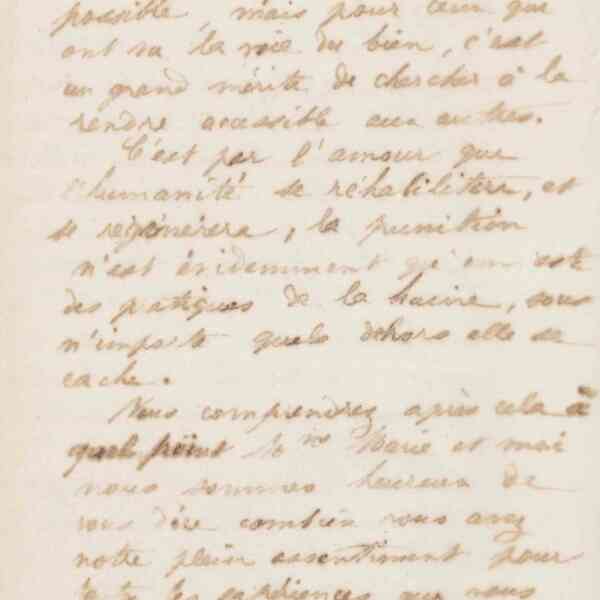 possible, mais pour ceux que
ont vu la voie du bien, c'est
un grand mérite de chercher à la
rendre accessible aux autres.
C'est par l'amour que
l'humanité se réhabilitera, et
se régénérera, la punition
n'est évidemment qu'un
des pratiques de la haine, sous
n'importe quels dehors elle se
cache.
Vous comprendrez après cela à
quel point Marie et moi
nous sommes heureux de
vous dire combien vous avez
notre plein assentiment pour
les expériences que vous